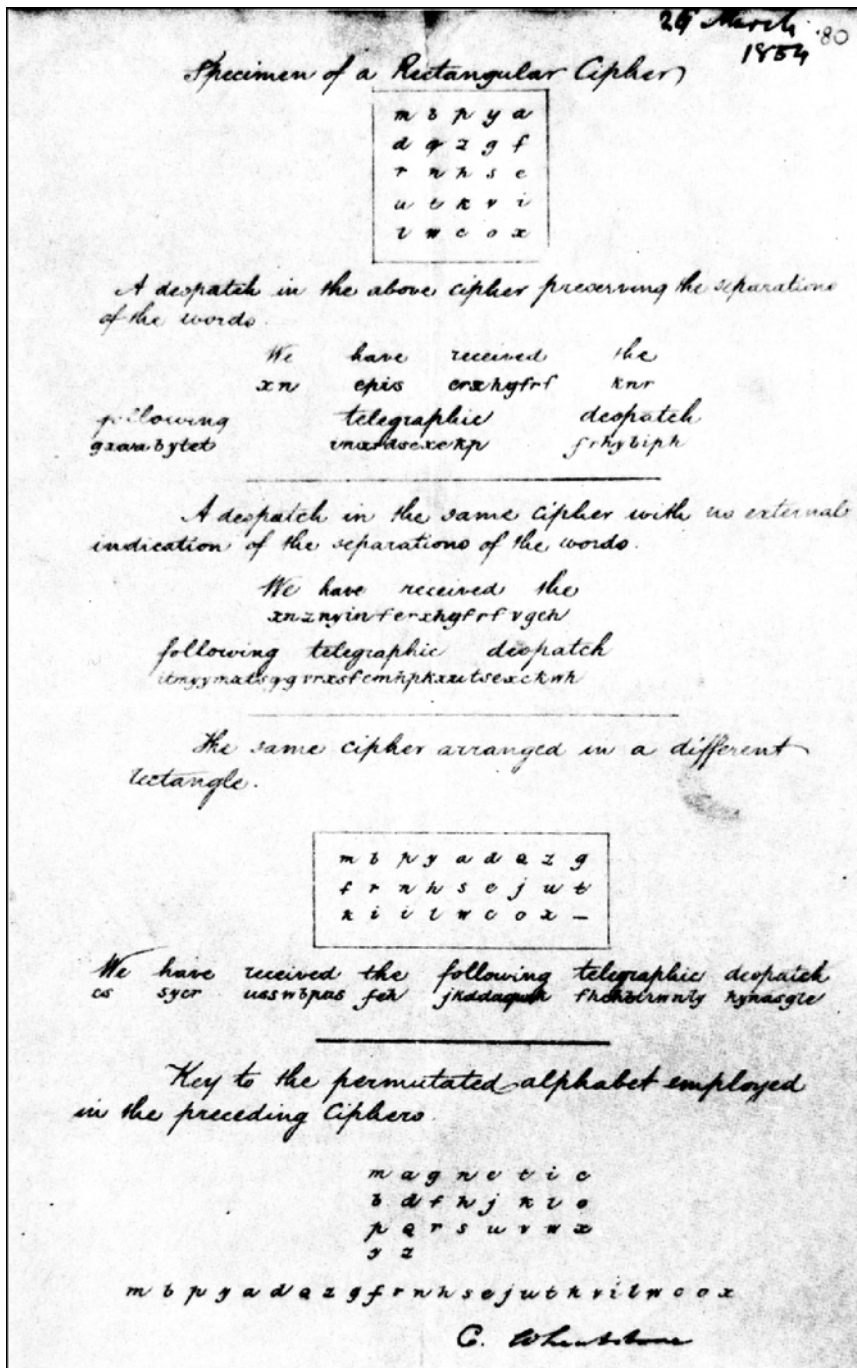 29 March 80
1854
Specimen of a Rectangular Cipher
m b p y a
d q z g f
r n h s e
u t k v i
l w c o x
A despatch in the above cipher preserving the separations
of the words.
We have received the
xn epis knr
following telegraphic despatch
frhybiph
A despatch in the same cipher with no external
indication of the separations of the words.
We have received the
following telegraphic despatch
The same cipher arranged in a different
rectangle.
m b p y a d q z g
f r n h s e j u t
k v i l w c o x –
We have received the following telegraphic despatch
cs sycr feh hynasgle
Key to the permutated alphabet employed
in the preceding Ciphers.
m a g n e t i c
b d f h j k l o
p q r s u v w x
y z
m b p y a d q z g f r n h s e j u t k v i l w c o x
C. Wheatstone